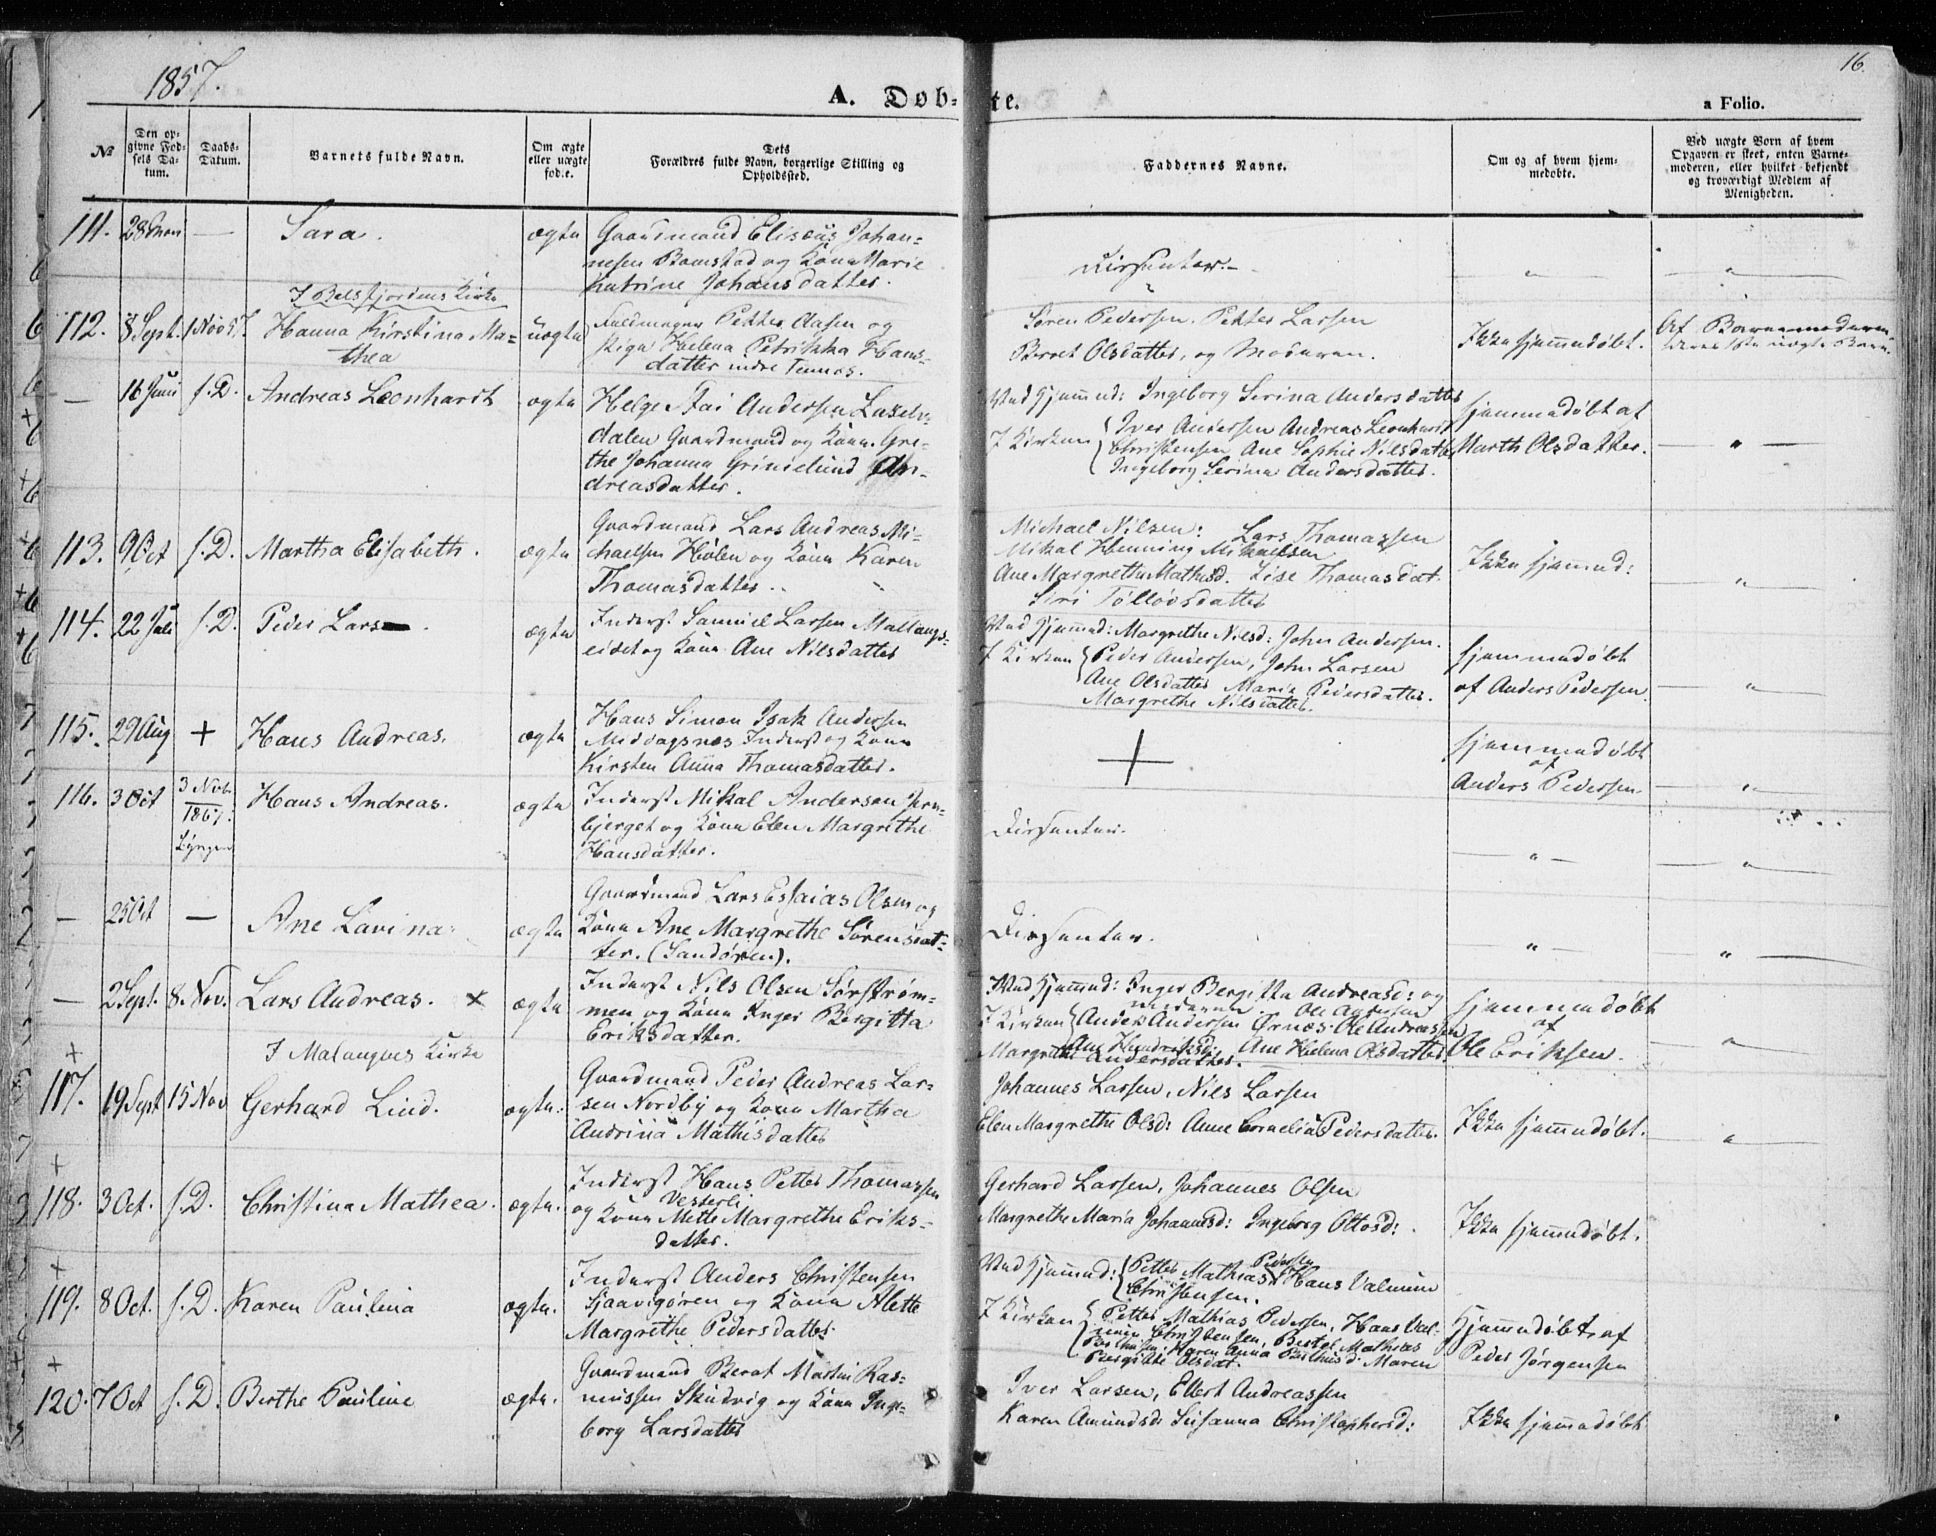 1857.
16.
A. Døb-
te.
a Folio.
No
Den op-
givne Fød-
sels Da-
tum.
Daabs-
Datum.
Barnets fulde Navn.
Om ægte
eller uægte
fød.e.
Dets
Forældres fulde Navn, borgerlige Stilling og
Opholdssted.
Faddernes Navne.
Om og af hvem hjem-
medøbte.
Ved uægte Børn af hvem
Opgaven er skeet, enten Barne-
moderen, eller hvilket bekjendt
og troværdigt Medlem af
Menigheden.
111. 28 — Sara. ægte Gaardmand Eliseus Johan-
nesen Bomstad og Kone Marie
Katrine Johansdatter.
Dissenter.
I Balsfjordens Kirke
112. 8 Sept. 1 Nov 57. Hanna Kirstina Ma-
thea
uægte Petter Aasen og
pige Helena Petrikka Hans-
datter indre Tennes.
Søren Pedersen. Petter Larsen
Berret Olsdatter, og Moderen.
Ikke hjemmedøbt.
Af Barnemoderen
— 16 Juni s. D. Andreas Leonhardt ægte Helge Andersen
dalen Gaardmand og Kone Gre-
the Johanna Grønlund An-
dreasdatter.
Ved Hjemmed: Ingeborg Serina Andersdatter
I Kirken Iver Andersen Andreas Leonhard
Christensen Ane Sophie Nilsdatter
Ingeborg Serina Andersdatter.
hjemmedøbt af
Marth Olsdatter.
113. 9 Oct s. D. Martha Elisabeth. ægte Gaardmand Lars Andreas Mi-
chaelsen Hølen og Kone Karen
Thomasdatter.
Michael Nilsen: Lars Thomassen
Mikal Henning Mikaelsen
Ane Margrethe Mathisd. Lise Thomasdat.
Siri Tølløvsdatter
Ikke hjemmed:
114. 22 Juli s. D. Peder Lars ægte Inderst Samuel Larsen Mallangs-
eidet og Kone Ane Nilsdatter
Ved Hjemmed: Margrethe Nilsd: John Andersen.
I Kirken Peder Andersen, John Larsen
Ane Olsdatter Maria Pedersdatter.
Margrethe Nilsdatter.
hjemmedøbt
af Anders Pedersen
115. 29 Aug + Hans Andreas. ægte Hans Simon Isak Andersen
Middagsnes Inderst og Kone
Kirsten Anna Thomasdatter.
+
hjemmedøbt
af
Anders Pedersen.
116. 3 Oct 3 Nov.
1867.
Lyngen
Hans Andreas. ægte Inderst Mikal Andersen Jern-
bjerget og Kone Elen Margrethe
Hansdatter.
Dissenter.
— 25 Oct — Ane Lavina. ægte Gaardmand Lars Essaias Olsen og
Kone Ane Margrethe Sørensdat-
ter. (Sandøren).
Dissenter.
— 2 Sept. 8. Nov. Lars Andreas. x ægte Inderst Nils Olsen Sørstrøm-
men og Kone Inger Bergitta
Eriksdatter.
Ved Hjemmed: Inger Bergitta Andreasd: og
I Kirken Anders Andersen Ørnæs. Ole Andreassen
Ane Hendriksd: Ane Helena Olsdatter
Margrethe Andersdatter.
hjemmedøbt
af
Ole Eriksen.
I Malangens Kirke
+
117. 19 Sept 15 Nov Gerhard Lind. ægte. Gaardmand Peder Andreas Lar-
sen Nordby og Kone Martha
Andrina Mathisdatter
Johannes Larsen, Nils Larsen
Elen Margrethe Olsd: Anne Cornelia Pedersdatter.
Ikke hjemmedøbt.
+
118. 3 Oct. s. D. Christina Mathea. ægte. Inderst Hans Petter Thomassen
Vesterli
og Kone Mette Margrethe Eriks-
datter.
Gerhard Larsen, Johannes Olsen
Margrethe Maria Johannesd: Ingeborg Ottosd:
Ikke hjemmedøbt.
+
119. 8 Oct. s. D. Karen Paulina ægte. Inderst Anders Christensen
Sjaavigøren og Kone Alette
Margrethe Pedersdatter.
Ved Hjemmed: Petter Mathias Pedersen Hans Valmin
Christensen.
I Kirken Petter Mathias Pedersen, Hans Val-
min Christensen, Bertel Mathias
Berthusen. Karen Anna Berthusd. Maren
Bergitte Olsdat.
Hjemmedøbt af
Peder Jørgensen
+
120. 7 Oct s. D. Berthe Pauline ægte. Gaardmand Berat Martin Ras-
mussen Skudvig og Kone Inge-
borg Larsdatter
Iver Larsen, Ellert Andreassen
Karen Amundsd: Susanna Christophersd:
Ikke hjemmedøbt